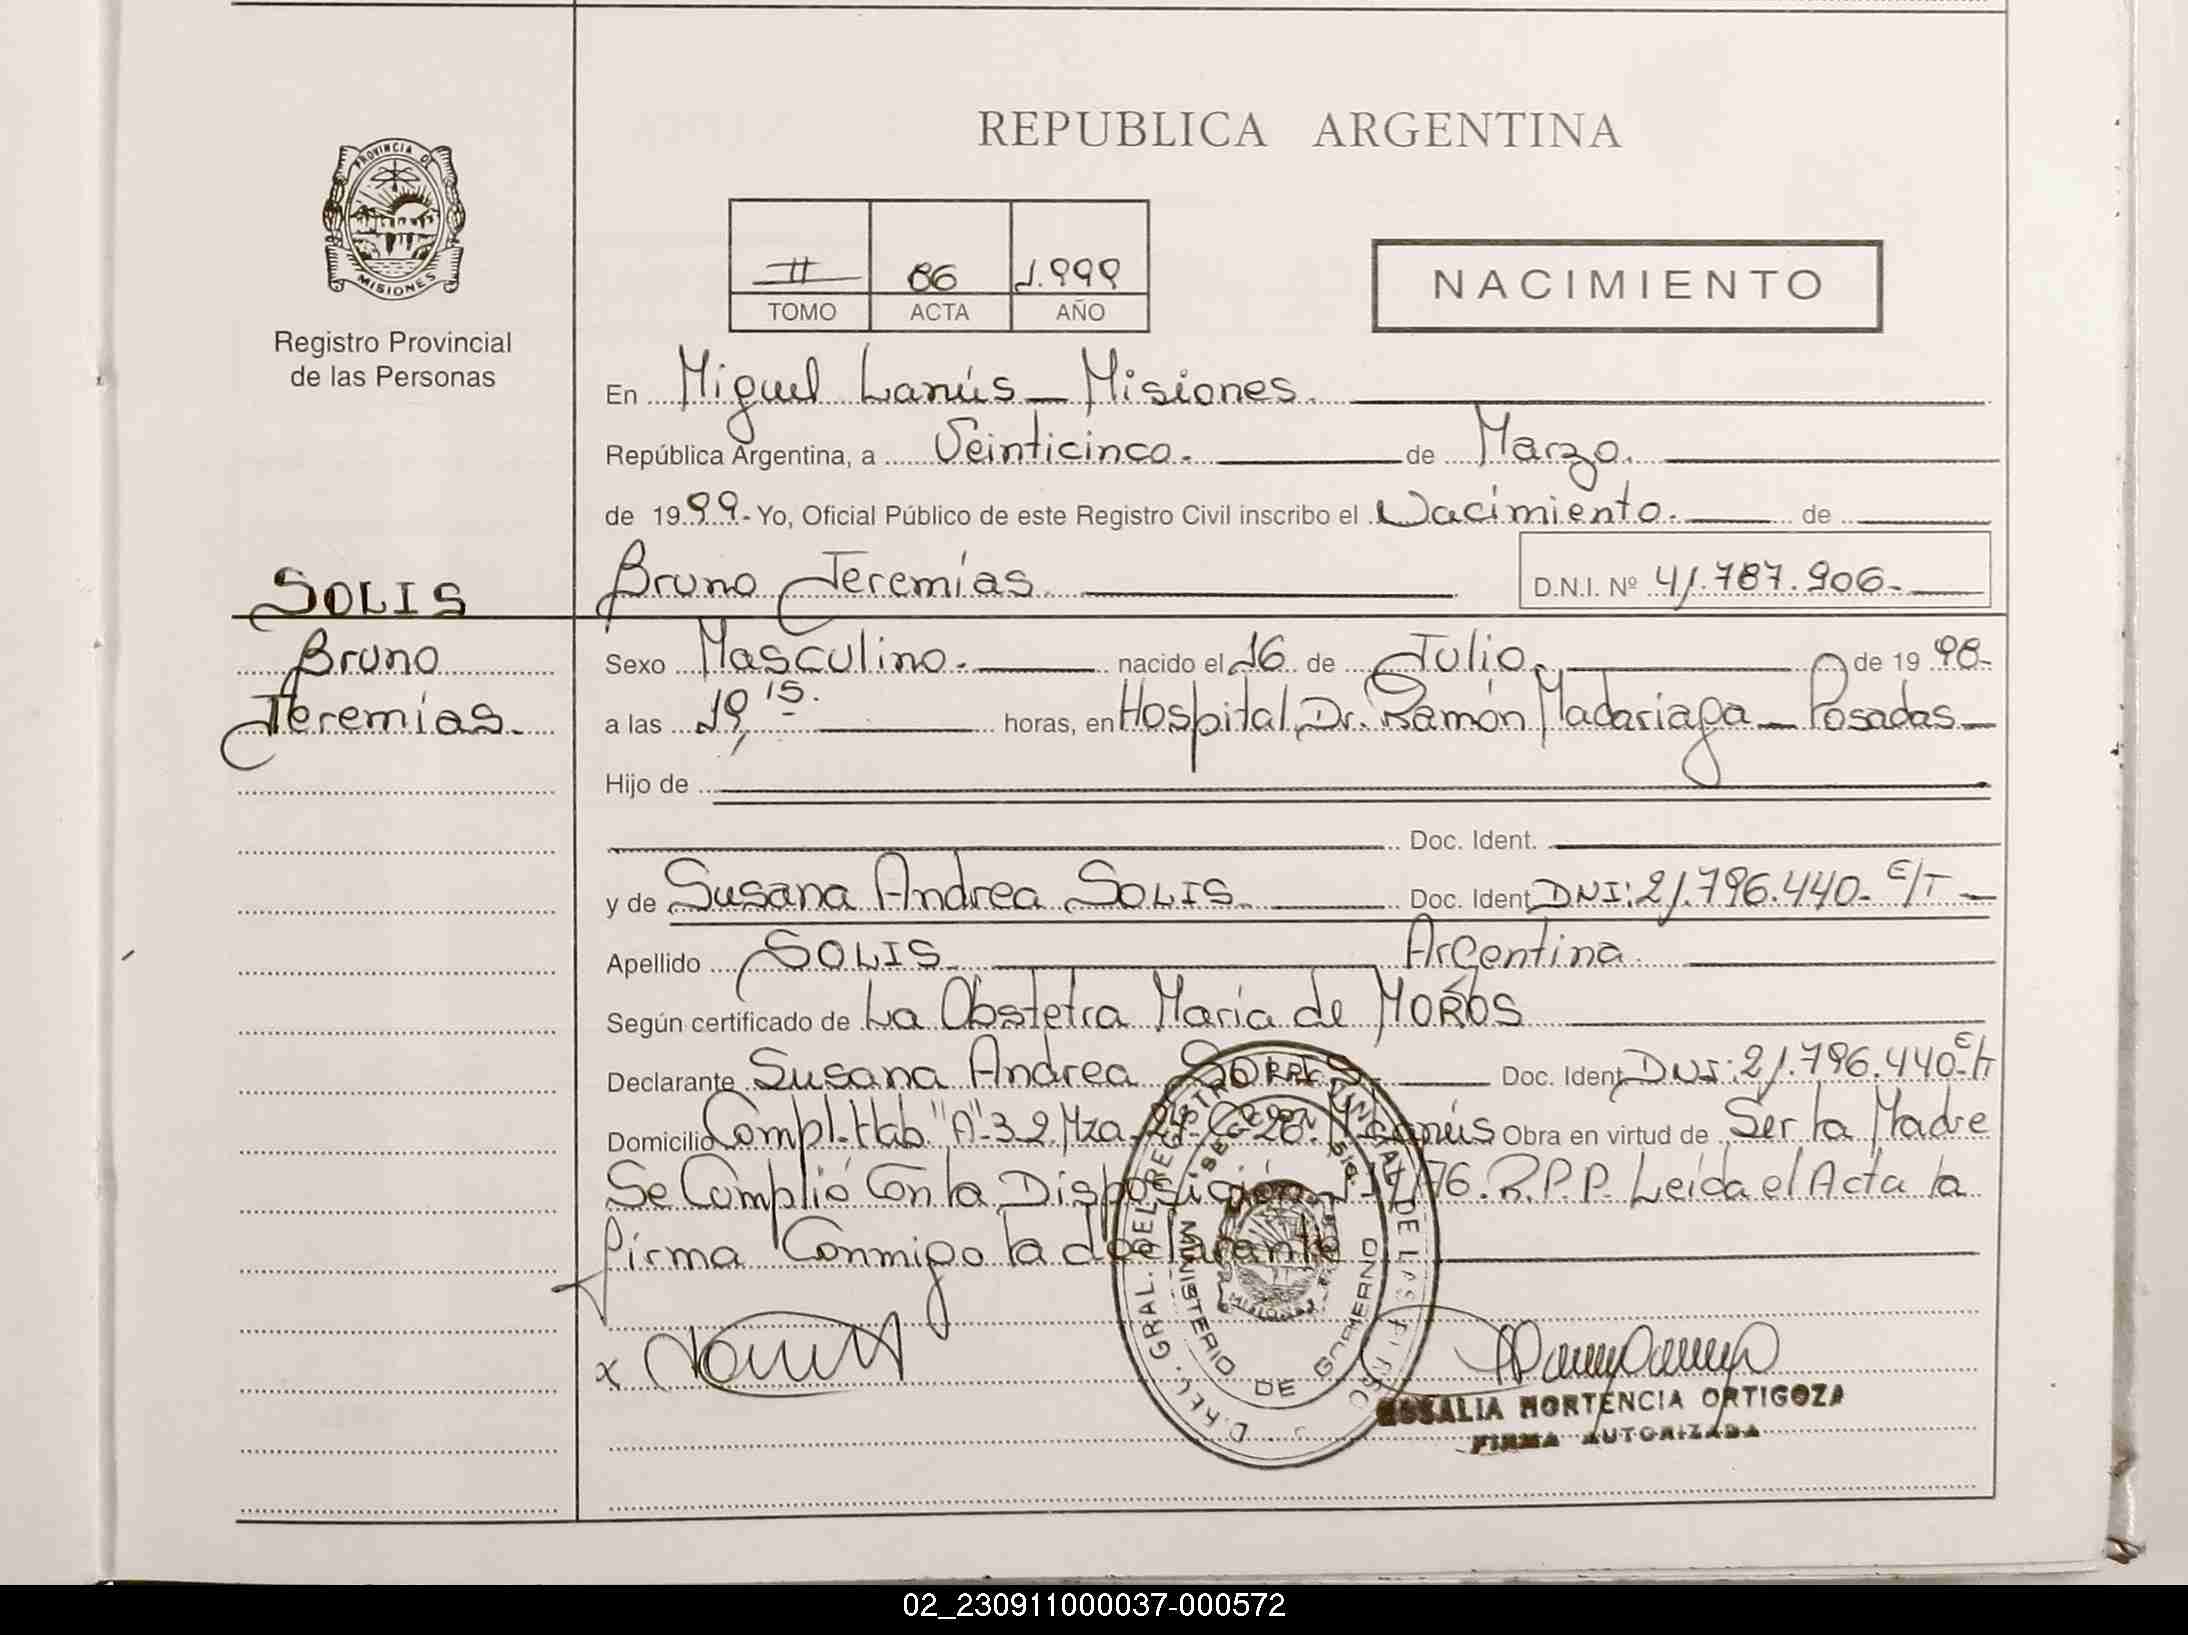 REPUBLICA ARGENTINA
PROVINCIA DE
MISIONES
Registro Provincial
de las Personas
II 86 1.999
TOMO ACTA AÑO
NACIMIENTO
En Miguel Lanús - Misiones.
República Argentina, a Veinticinco. de Marzo.
de 1999.- Yo, Oficial Público de este Registro Civil inscribo el Nacimiento. de
Bruno Jeremías. D.N.I. Nº 41.787.906.-
SOLIS
Bruno
Jeremías.
Sexo Masculino. nacido el 16 de Julio. de 1998.
a las 19,15. horas, en Hospital Dr. Ramón Madariaga - Posadas
Hijo de
Doc. Ident.
y de Susana Andrea SOLIS. Doc. Ident. DNI: 21.796.440. E/T
Apellido SOLIS. Argentina.
Según certificado de La Obstetra María de
Declarante Susana Andrea Doc. Ident. DNI: 21.796.440. E/T
Domicilio Compl. Hab. "A" 32 Mza. Obra en virtud de Ser la Madre
Se Cumplió Con la Disposición R.P.P. Leída el Acta la
firma Conmigo la declarante
DREC. GRAL. DEL REGISTRO PROVINCIAL DE LAS
MINISTERIO DE GOBIERNO
MISIONES
x
ROSALIA HORTENCIA ORTIGOZA
FIRMA AUTORIZADA
02_230911000037-000572